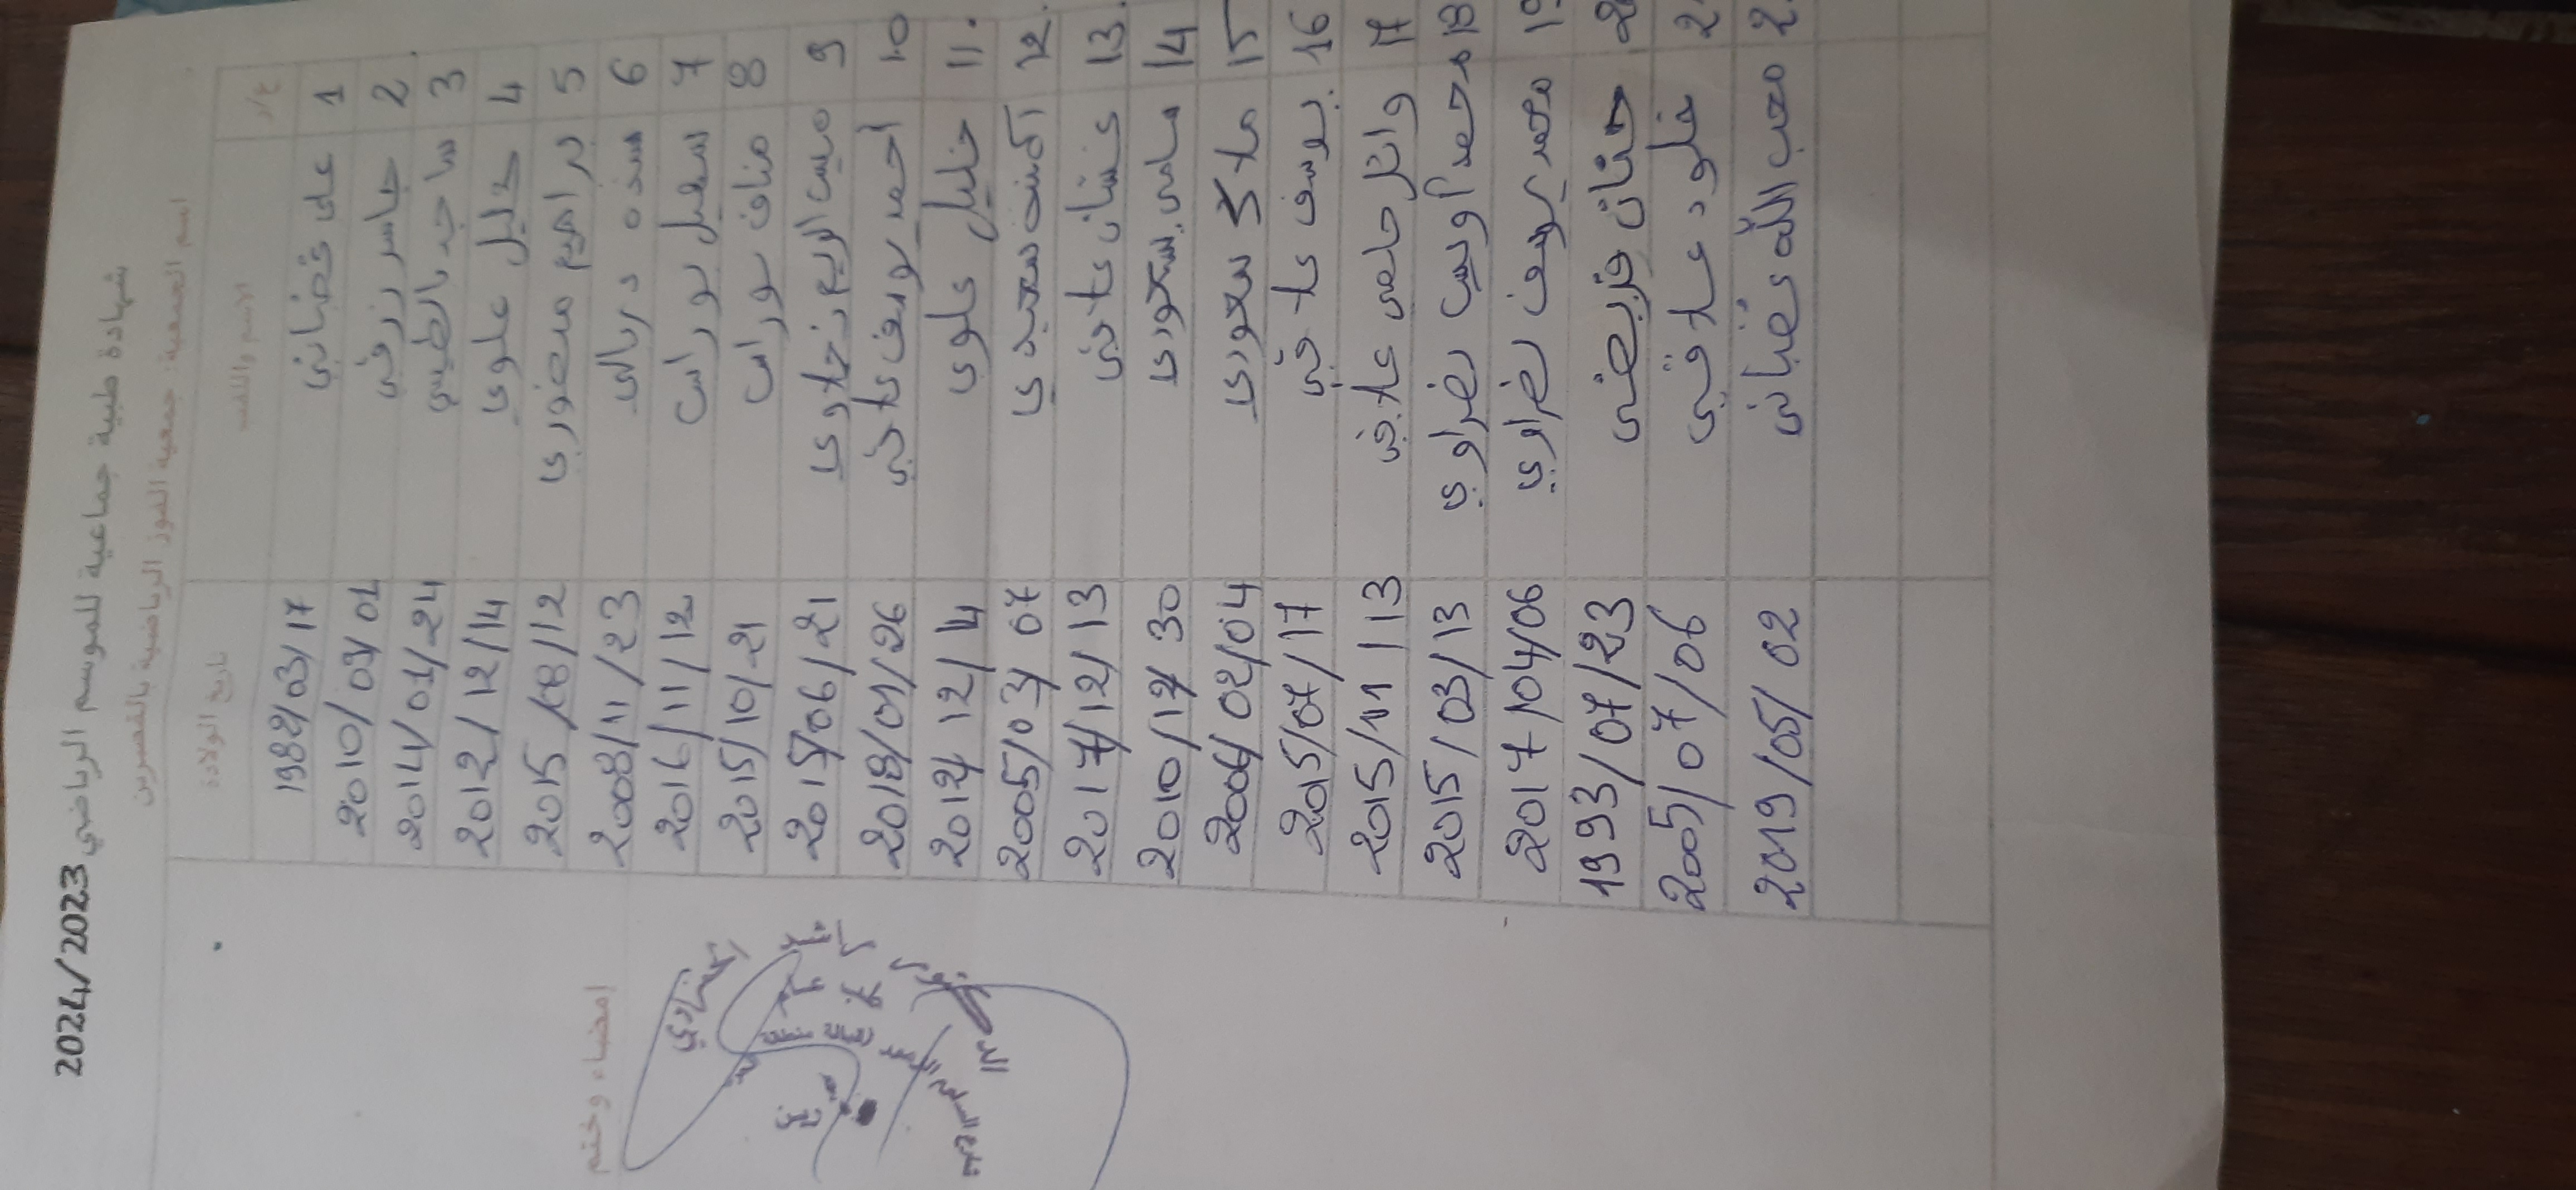 شهادة طبية جماعية للموسم الرياضي 2024/2023
اسم الجمعية: جمعية الفوز الرياضية بالقصرين
ع/ر الاسم واللقب تاريخ الولادة
1 علي غضباني 1982/03/17
2 جاسر رزقي 2010/
3 ساجد بالطيبي 2014/01/24
4 خليل علوي 2012/12/14
5 براهيم منصوري 2015/08/12
6 سند دربالي 2008/11/23
7 سهيل بوراس 2016/11/12
8 مناف بوراس 2015/10/21
9 2015/06/21
10 أحمد يوسف 2018/01/26
11. خليل علوي 2012/12/4
12. سعيدي 2005/03/07
13. غسان عاجي 2017/12/13
14 سعودي 2010/12/30
15 سعودي 2006/02/04
16 يوسف 2015/07/17
17 وائل 2015/11/13
18 محمد أويس نصراوي 2015/03/13
محمد يوسف نصراوي 2017/04/06
حنان 1993/07/23
خلود 2005/07/06
محب الله غضباني 2019/05/02
إمضاء وختم